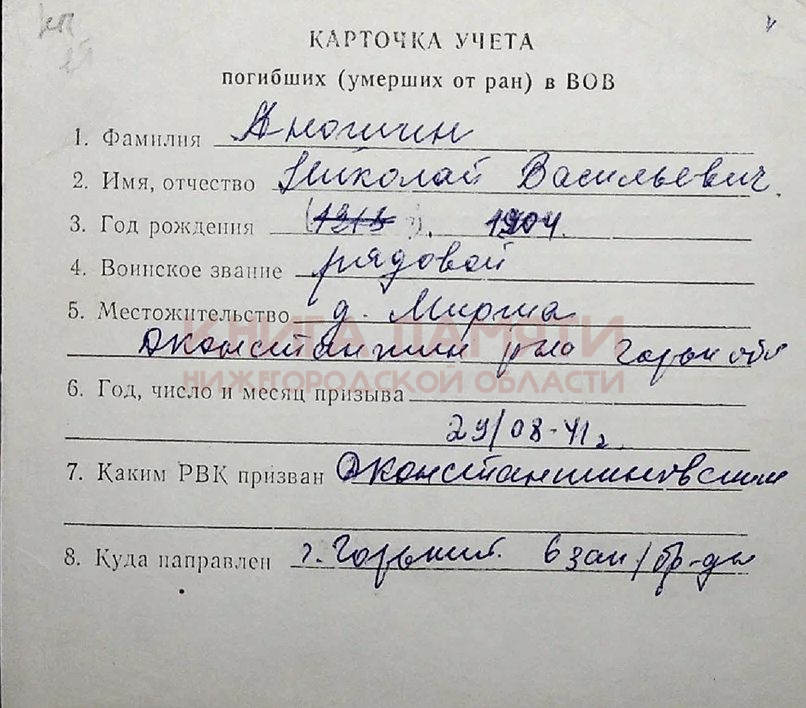 КАРТОЧКА УЧЕТА
погибших (умерших от ран) в ВОВ
1. Фамилия Аношин
2. Имя, отчество Николай Васильевич.
3. Год рождения (1915). 1904.
4. Воинское звание рядовой
5. Местожительство д. Мирша
КНИГА ПАМЯТИ
Дконстантин р-на Горьк обл
НИЖЕГОРОДСКОЙ ОБЛАСТИ
6. Год, число и месяц призыва
29/08-41г.
7. Каким РВК призван Дконстантиновским
8. Куда направлен г. Горький. 6 зап/бр-ды